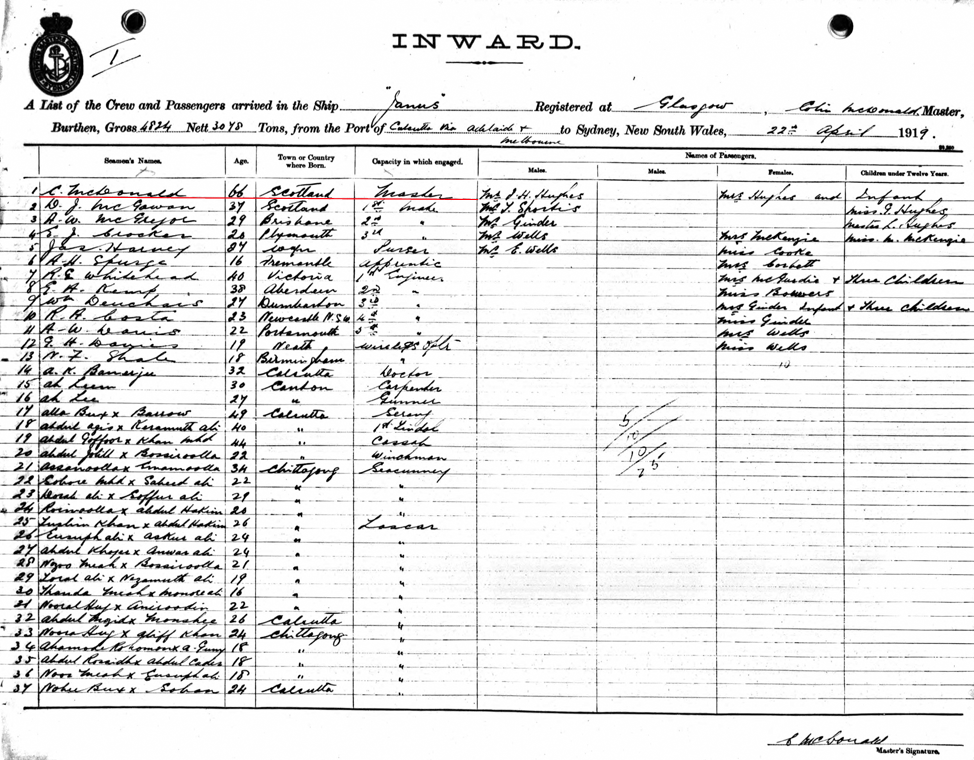 1
INWARD.
A List of the Crew and Passengers arrived in the Ship "Janus" Registered at Glasgow, Colin McDonald, Master,
Burthen, Gross 4824 Nett 3048 Tons, from the Port of Calcutta via Adelaide & Melbourne to Sydney, New South Wales, 22nd April 1919.
Seamen's Names. Age. Town or Country where Born. Capacity in which engaged. Names of Passengers.
Males. Males. Females. Children under Twelve Years.
1 C. McDonald 66 Scotland Master Mr J. H. Hughes Mrs Hughes and Infant
2 D. J. McGowan 37 Scotland 1st Mate Mr Miss J. Hughes
3 A. W. McGregor 29 Brisbane 2nd " Mr Ginder Master L. Hughes
4 E. J. Crocker 20 Plymouth 3rd " Mr Wells Mrs McKenzie Miss M. McKenzie
5 Jas. Harvey Purser Mr E. Wells Miss Cooke
6 A. H. Spurge 16 Fremantle Apprentic Mrs Corbett
7 R. E. Whitehead 40 Victoria 1st Engineer Mrs & Three Children
8 E. A. Kemp 38 Aberdeen 2nd " Miss Bowers
9 Wm Deuchars 27 Dumbarton 3rd " Mrs Ginder Infant & Three Children
10 R. A. Costa 23 Newcastle N.S.W. 4th " Miss Ginder
11 A. W. Davis 22 Portsmouth 5th " Mrs Wells
12 G. H. Davies 19 Neath Wireless Optr Miss Wells
13 N. F. Shale 18 Birmingham " 10
14 A. K. Banarjee 32 Calcutta Doctor
15 Ah Leem 30 Canton Carpender
16 Ah Lee 27 " Gunner
17 Alla Bux x Barrow 49 Calcutta Serang
18 Abdul x Keramuth Ali 40 " 1st Tindel 5
19 Abdul Goffoor x Khan Mhd 44 " Cassab 10
20 Abdul x Bossiroolla 22 " Winchman 10
21 Assanoolla x Emamoolla 34 Chittagong Seacunney 25
22 x Saheed Ali 22 " "
23 Ali x Goffur Ali 29 " "
24 x Abdul Hakim 20 " "
25 Khan x Abdul Hakim 26 " Lascar
26 Eusuph Ali x Asker Ali 24 " "
27 Abdul x Anwar Ali 24 " "
28 Meah x Bossiroolla 21 " "
29 Ali x Nezamuth Ali 19 " "
30 Meah x 16 " "
31 Nooral Huq x 22 " "
32 Abdul Mejid x Monshee 26 Calcutta "
33 Noora Huq x Khan 24 Chittagong "
34 18 " "
35 Abdul x Abdul Cader 18 " "
36 Noor Meah x Eusuph Ali 18 " "
37 Bux x 24 Calcutta "
C McDonald
Master's Signature.